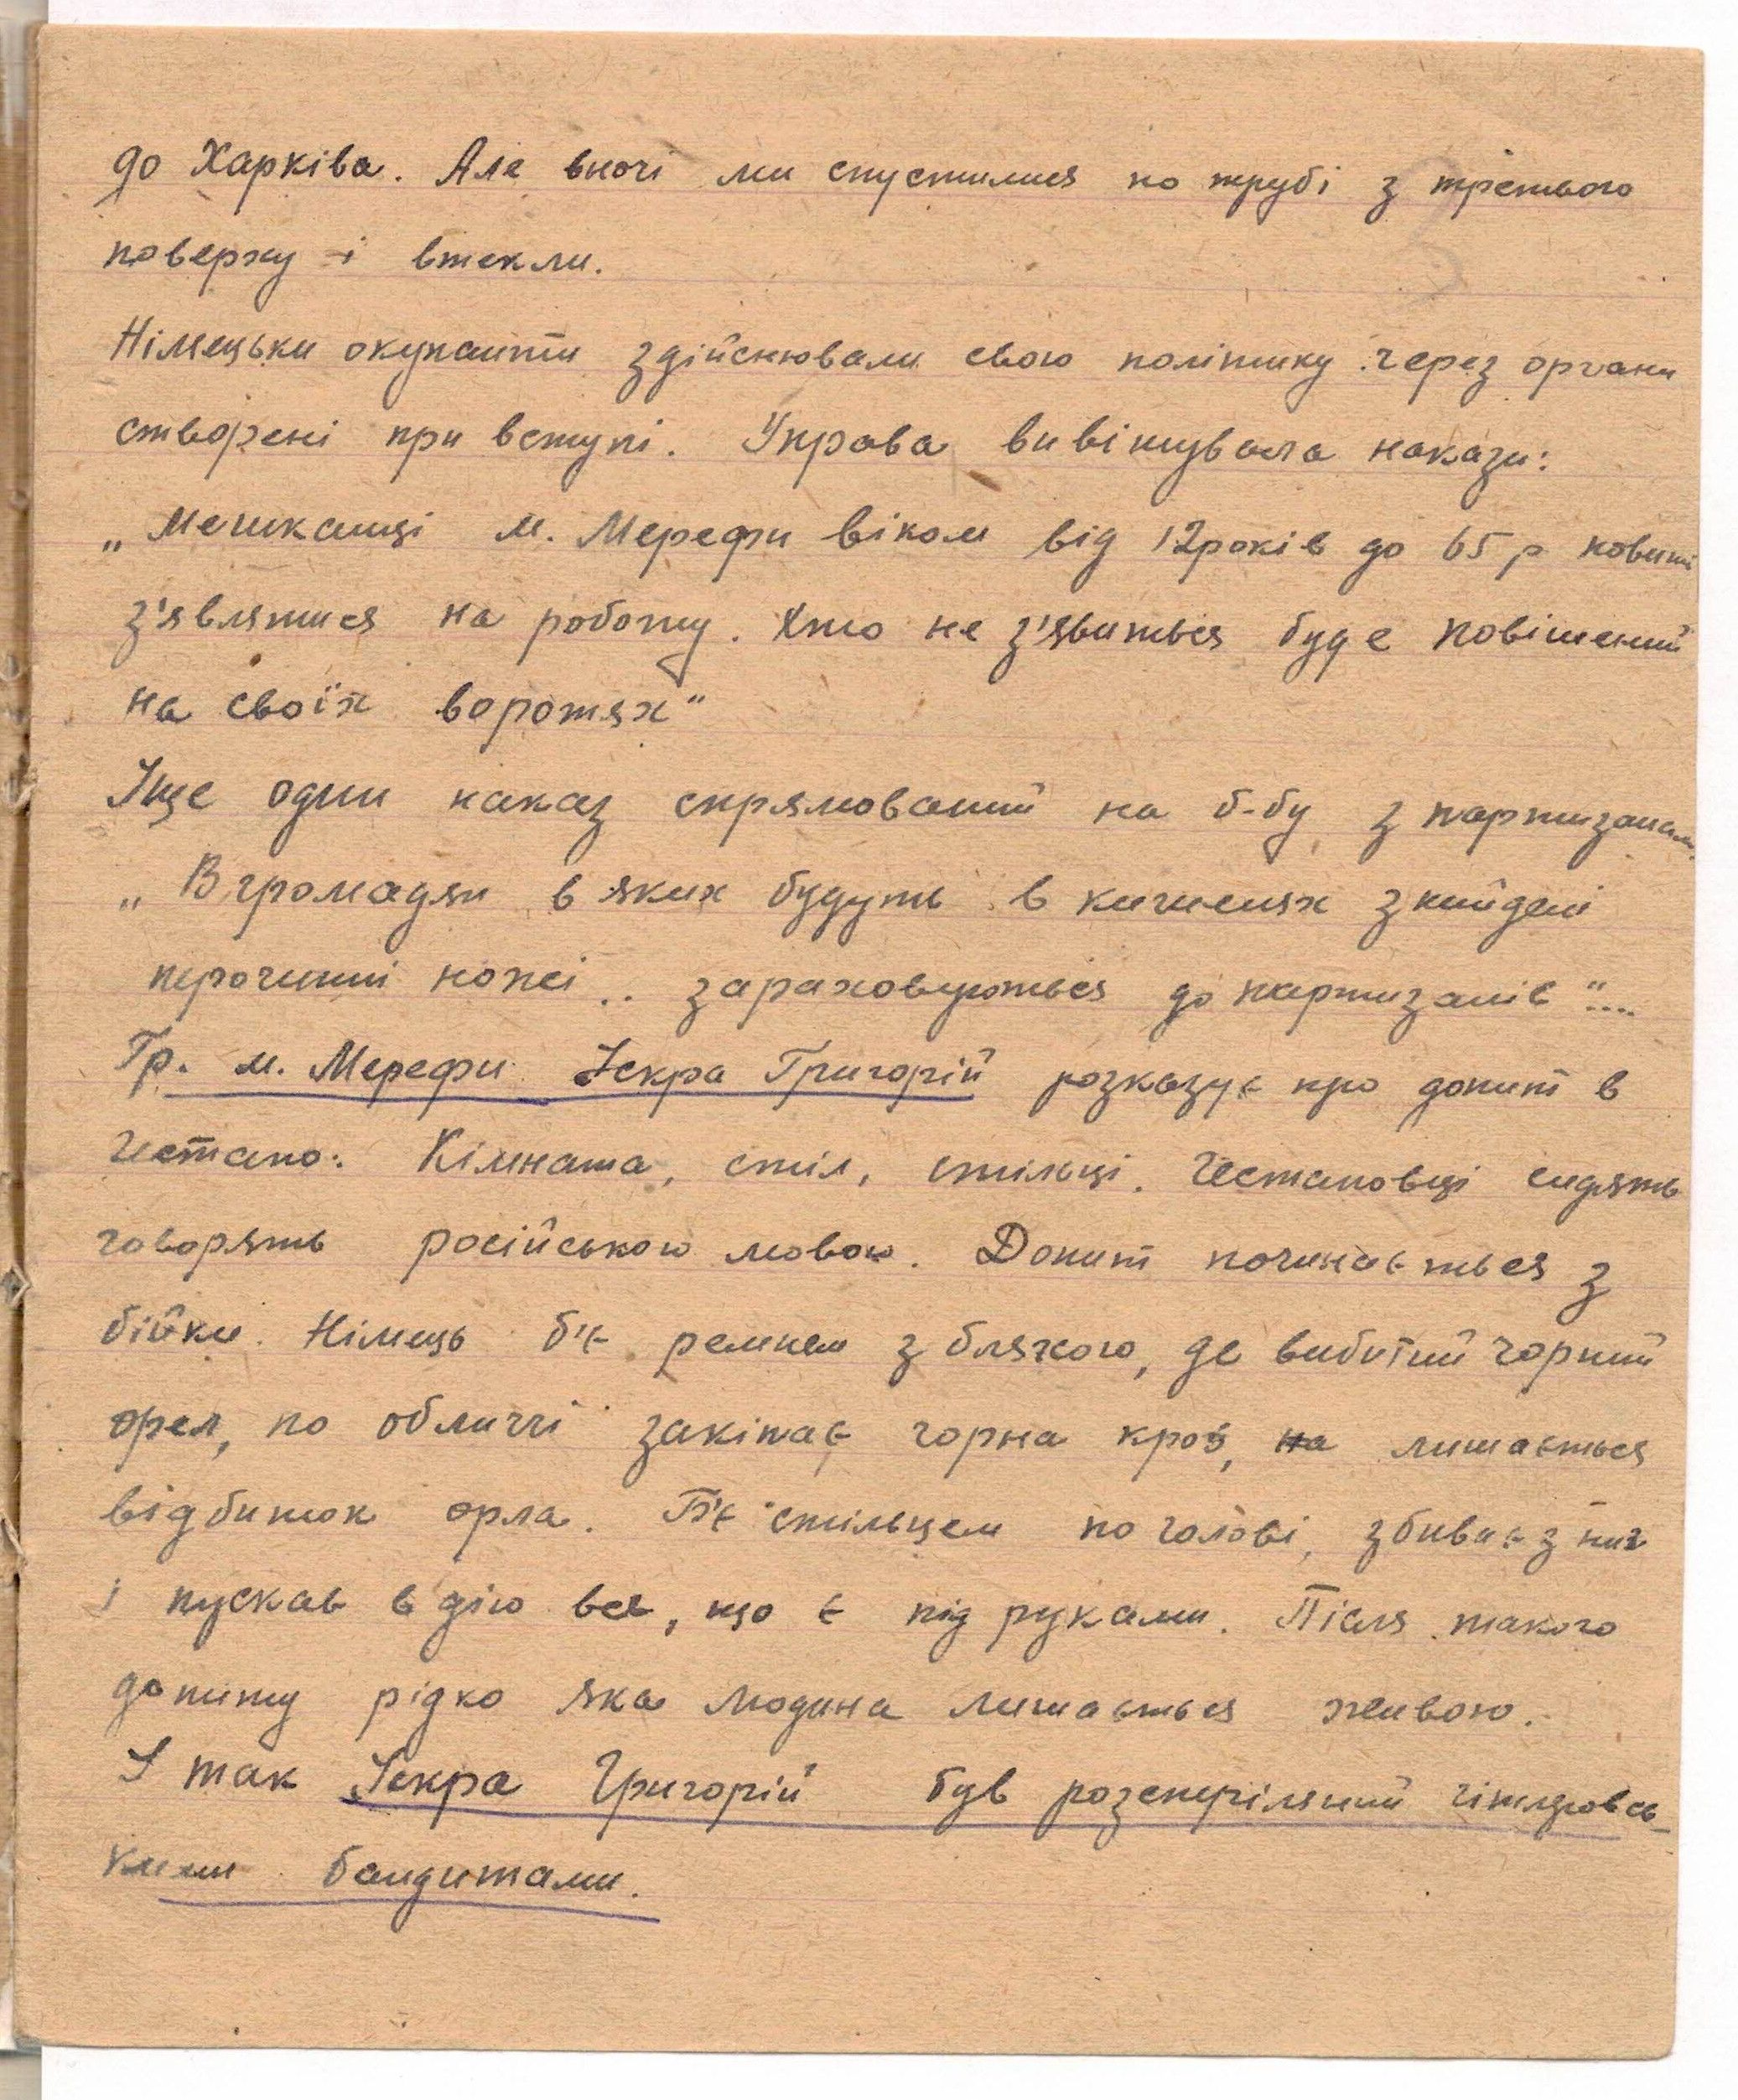 до Харківа. Але вночі ми спустилися по трубі з третього
поверху і втекли.
Німецьки окупанти здійснювали свою політику через органи
створені при вступі. Управа вивішувала накази:
„Мешканці м. Мерефи віком від 12років до 65 р повинні
з'являтися на роботу. Хто не з'явиться буде повішений
на своїх воротях"
Іще один наказ спрямований на б-бу з партизанами.
„В громадян в яких будуть в кишенях знайдені
перочинні ножі .. зараховуються до партизанів"....
Гр. м. Мерефи Іскра Григорій розказує про допит в
гестапо: Кімната, стіл, стільці. Гестаповці сидять
говорять російською мовою. Допит починається з
бійки. Німець б'є ремнем з бляхою, де вибитий чорний
орел, по обличчі закіпає чорна кров, на лишається
відбиток орла. Б'є стільцем по голові, збиває з ніг
і пускав в дію все, що є під руками. Після такого
допиту рідко яка людина лишається живою.
І так Іскра Григорій був розстріляний гітлровсь-
кими бандитами.